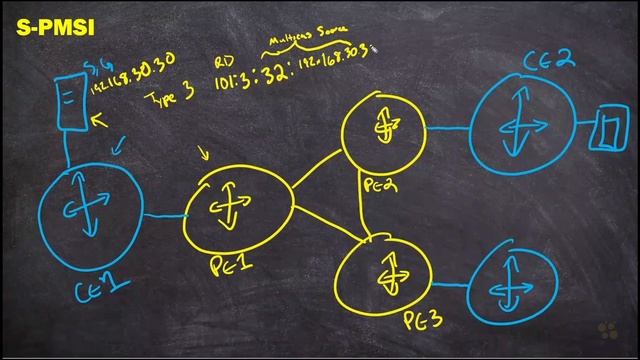 S-PMSI
S,G
192.168.30.30
Type 3
RD
101:3:32:192.168.30.3
Multicast Source
CE2
PE2
PE1
CE1
PE3